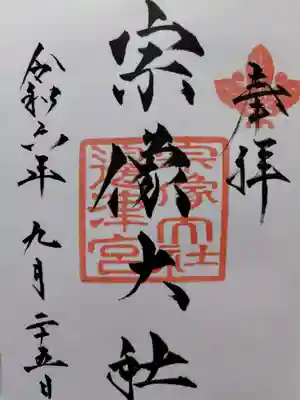 奉拝
宗像大社
宗像大社
邊津宮
令和六年九月二十五日